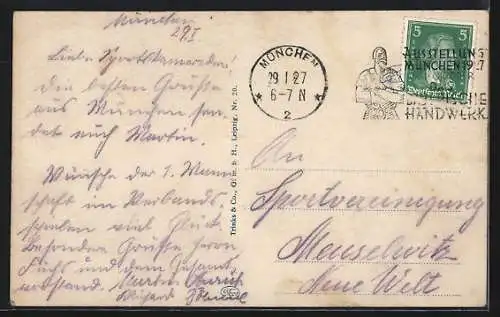 München
29 I
Liebe Sportskameraden!
Die besten Grüsse
aus München sen-
det euch Martin.
Wünsche der 1. Mann
schaft im Verbands
spielen viel Glück.
Besonders Grüsse Herrn
Fuchs und dem Gesamt
vorstand. Martin
Richard
Trinks & Co., G. m. b. H., Leipzig. Nr. 20.
MÜNCHEN
29.1.27
6-7 N
2
AUSSTELLUNG
MÜNCHEN 1927
DAS
BAYERISCHE
HANDWERK
5 5
Deutsches Reich
An
Sportvereinigung
Meuselwitz
Neue Welt